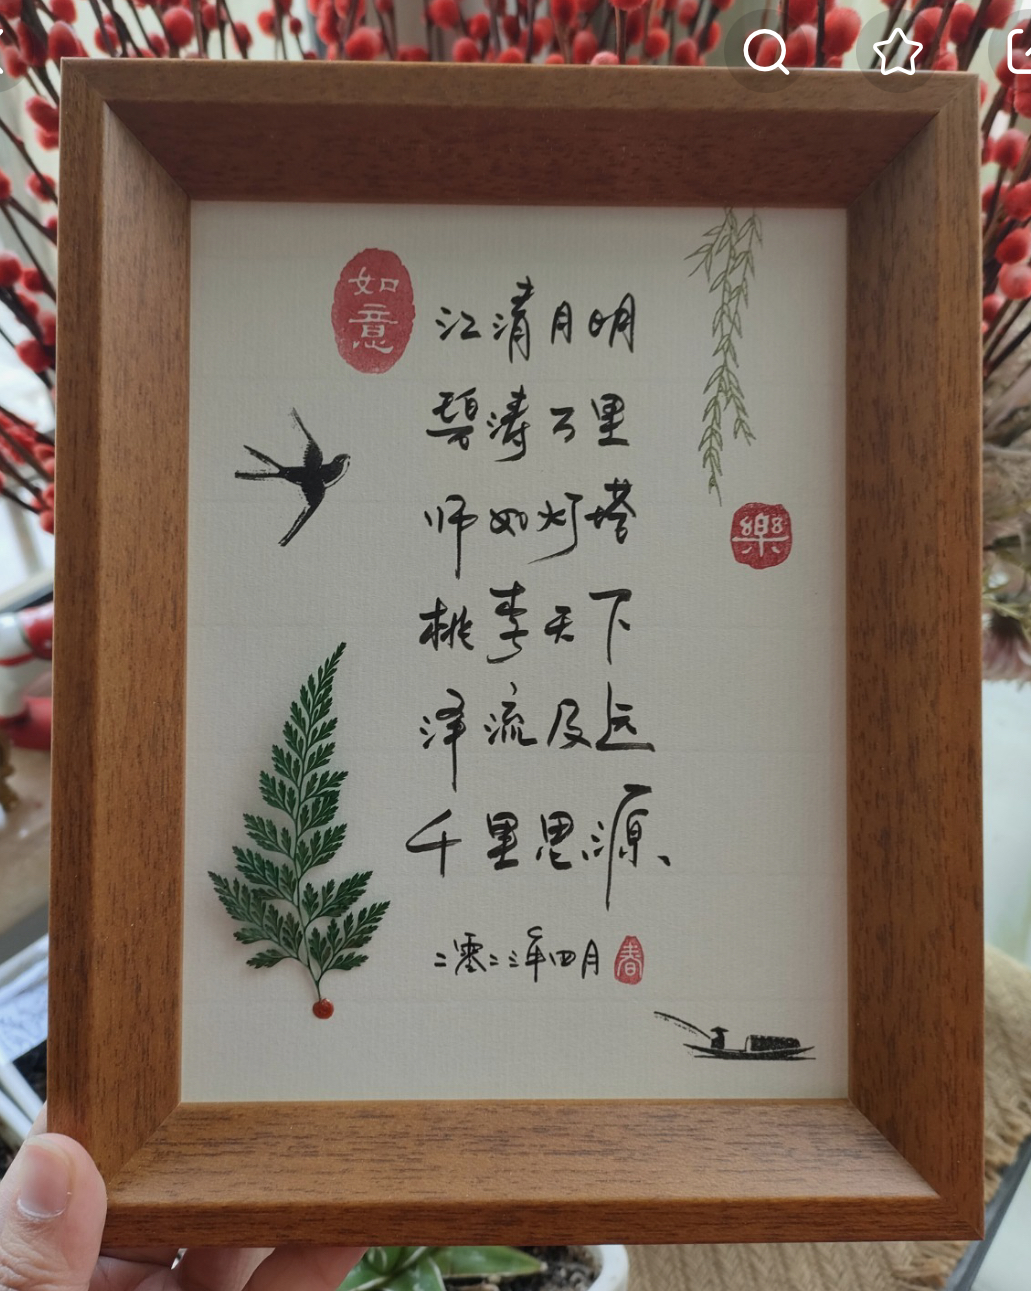 如意
江清月明
碧涛万里
师如灯塔
桃李天下
泽流及远
千里思源、
樂
二零二三年四月
春